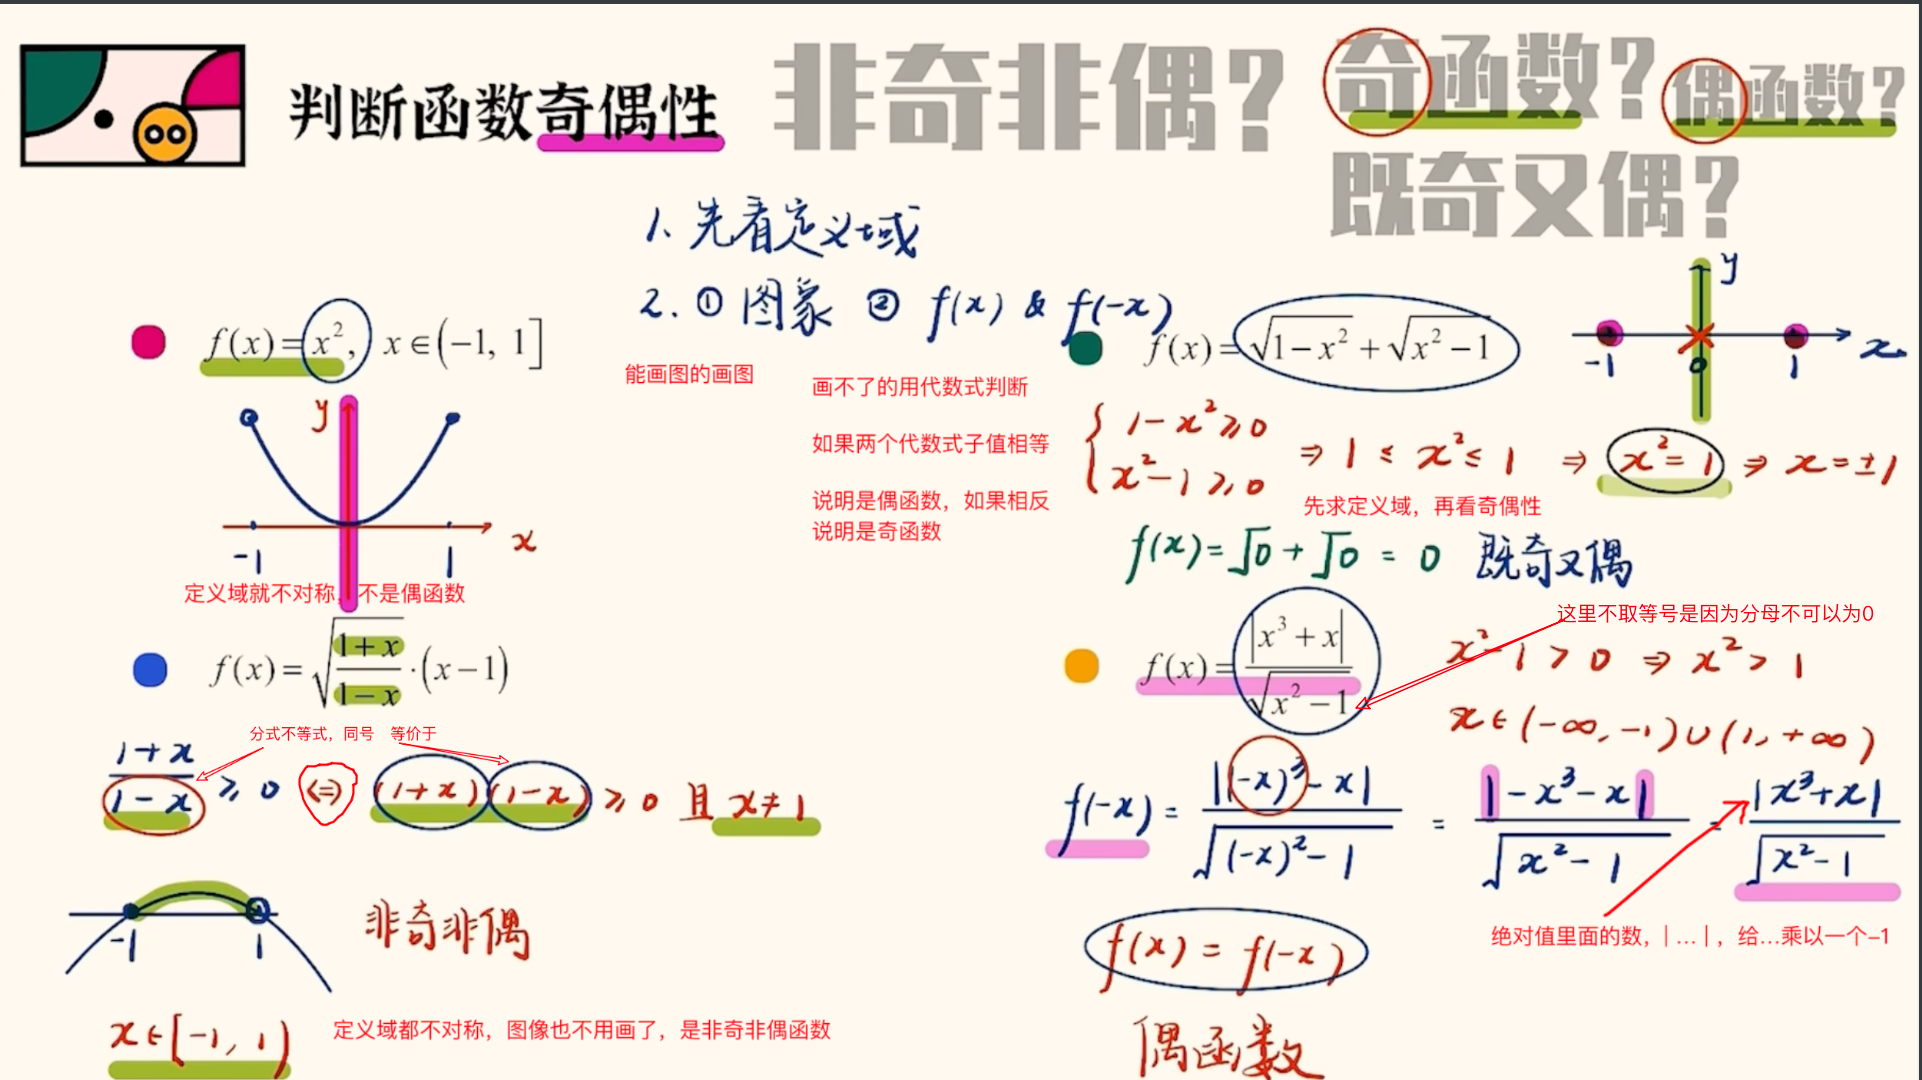 判断函数奇偶性
非奇非偶?
奇函数?
偶函数?
既奇又偶?
1. 先看定义域
2. ① 图象 ② f(x) & f(-x)
能画图的画图
画不了的用代数式判断
如果两个代数式子值相等
说明是偶函数，如果相反
说明是奇函数
f(x)=x², x∈(-1, 1]
y
-1 1 x
定义域就不对称，不是偶函数
f(x)=√((1+x)/(1-x))·(x-1)
分式不等式，同号 等价于
(1+x)/(1-x) ≥ 0 ⇔ (1+x)(1-x) ≥ 0 且 x≠1
-1 1
非奇非偶
x∈[-1, 1)
定义域都不对称，图像也不用画了，是非奇非偶函数
f(x)=√(1-x²)+√(x²-1)
y
-1 0 1 x
{ 1-x²≥0
x²-1≥0 ⇒ 1 ≤ x² ≤ 1 ⇒ x²=1 ⇒ x=±1
先求定义域，再看奇偶性
f(x)=√0+√0 = 0 既奇又偶
这里不取等号是因为分母不可以为0
f(x)=|x³+x|/√(x²-1)
x²-1>0 ⇒ x²>1
x∈(-∞,-1)∪(1,+∞)
f(-x) = |(-x)³-x|/√((-x)²-1) = |-x³-x|/√(x²-1) = |x³+x|/√(x²-1)
绝对值里面的数，| ... |，给...乘以一个-1
f(x) = f(-x)
偶函数